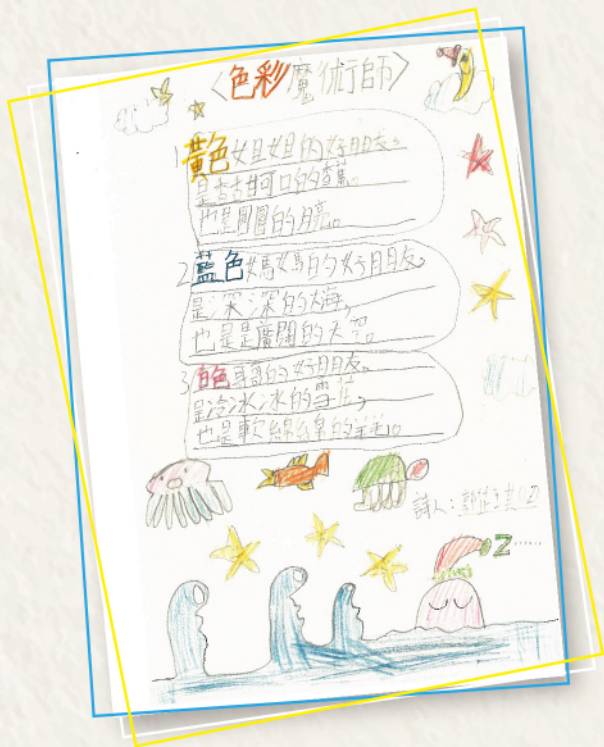 〈色彩魔術師〉
1 黃色姐姐的好朋友,
是香甜可口的香蕉。
也是圓圓的月亮。
2 藍色媽媽的好朋友,
是深深的大海,
也是是廣闊的大
3 白色哥哥的好朋友。
是冷冰冰的雪花,
也是軟綿綿的羊羊。
詩人:
Z......